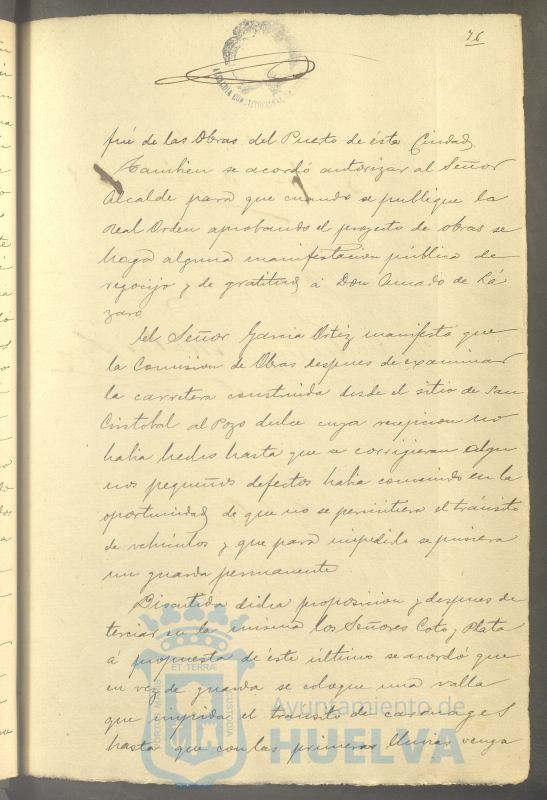 76
ALCALDIA CONSTITUCIONAL DE
fué de las Obras del Puerto de ésta Ciudad.
Tambien se acordó autorizar al Señor
Alcalde para que cuando se publique la
Real Orden aprobando el proyecto de obras se
haga alguna manifestacion pública de
regocijo y de gratitud á Don Amado de Lá
zaro.
El Señor Garcia Ortiz manifestó que
la Comision de Obras despues de examinar
la carretera construida desde el sitio de San
Cristobal al Pozo dulce cuya recepcion no
habia hecho hasta que se corrigieran algu
nos pequeños defectos habia convenido en la
oportunidad de que no se permitiera el tránsito
de vehículos y que para impedirlo se pusiera
un guarda permanente.
Discutida dicha proposicion y despues de
terciar en la misma los Señores Coto y Plata
á propuesta de éste último se acordó que
en vez de guarda se coloque una valla
que impida el tránsito de carruages
hasta que con las primeras lluvias venga
PORTUS MARIS ET TERRÆ CUSTODIA
Ayuntamiento de
HUELVA